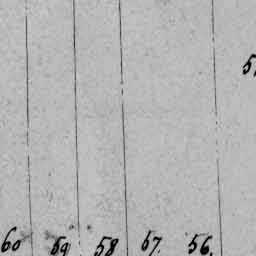 5
60 59 58 57. 56.